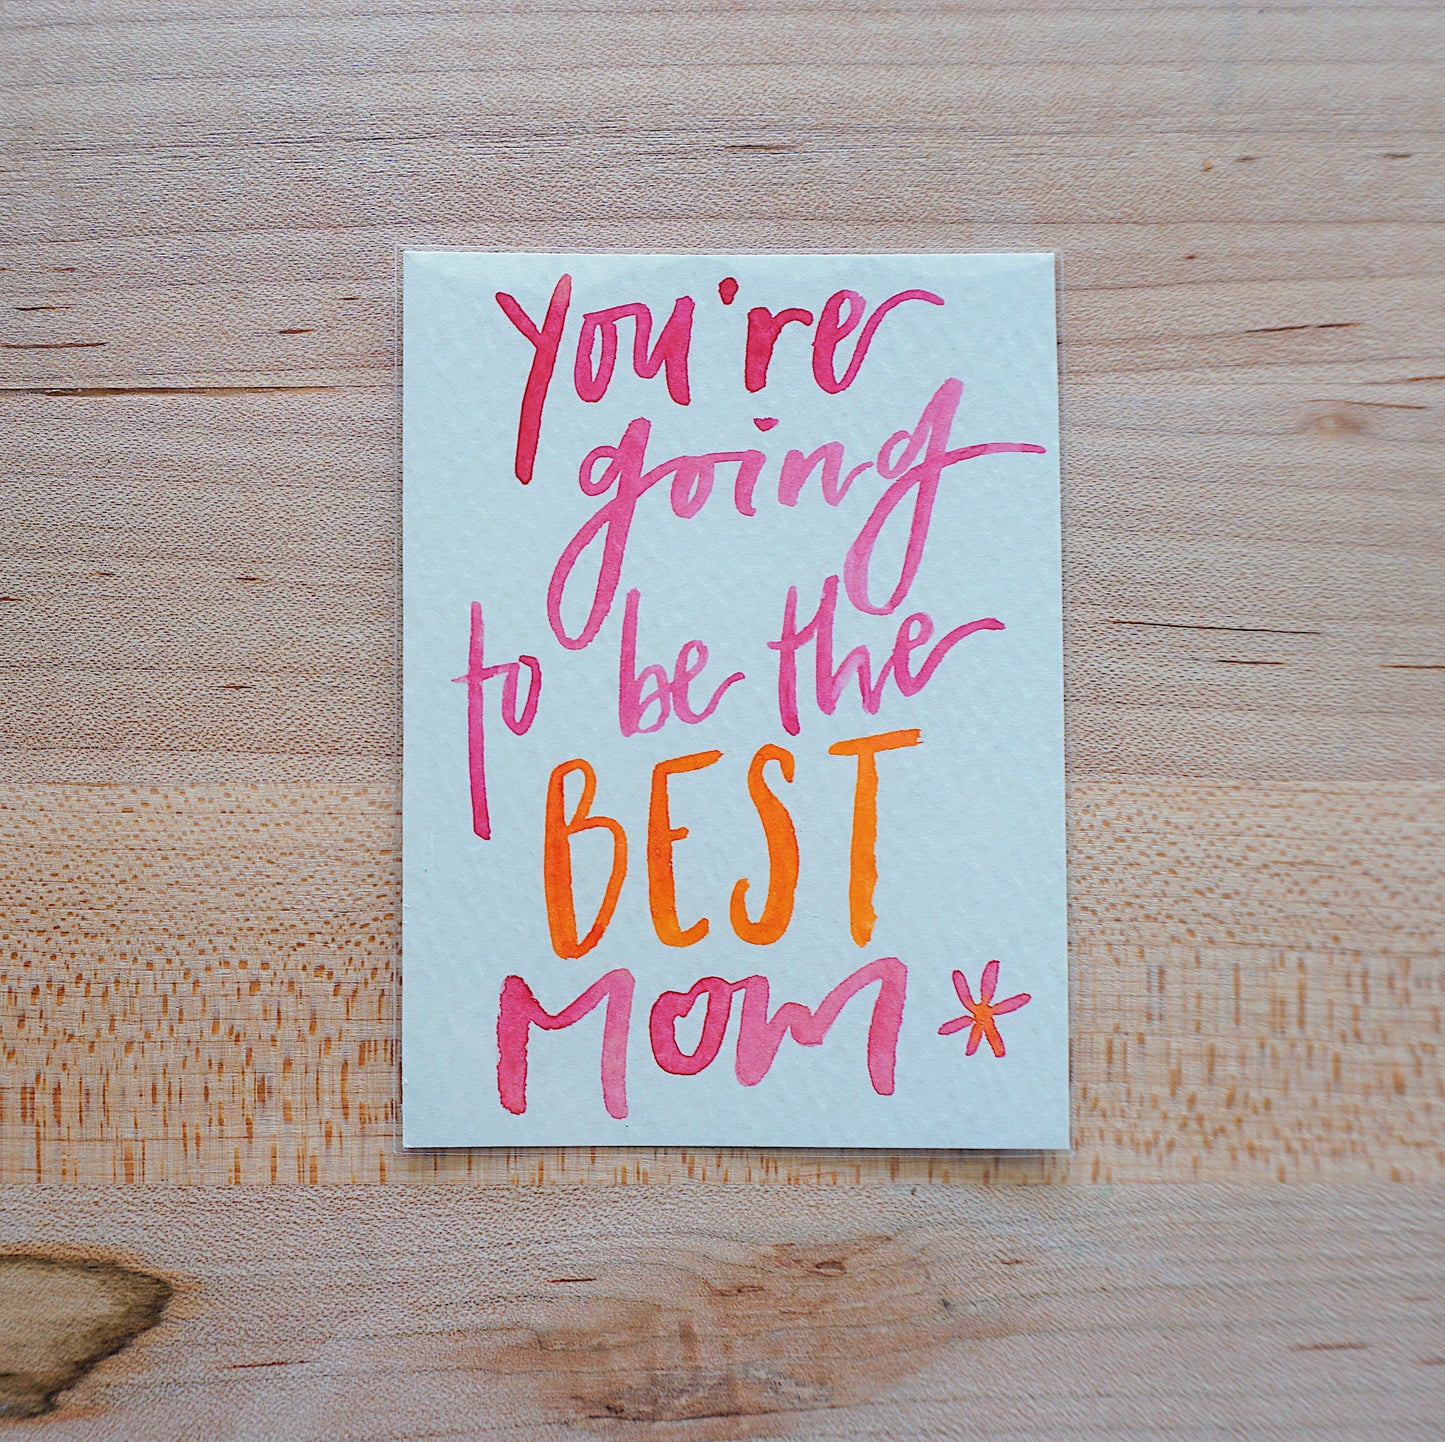 you're
going
to be the
BEST
Mom